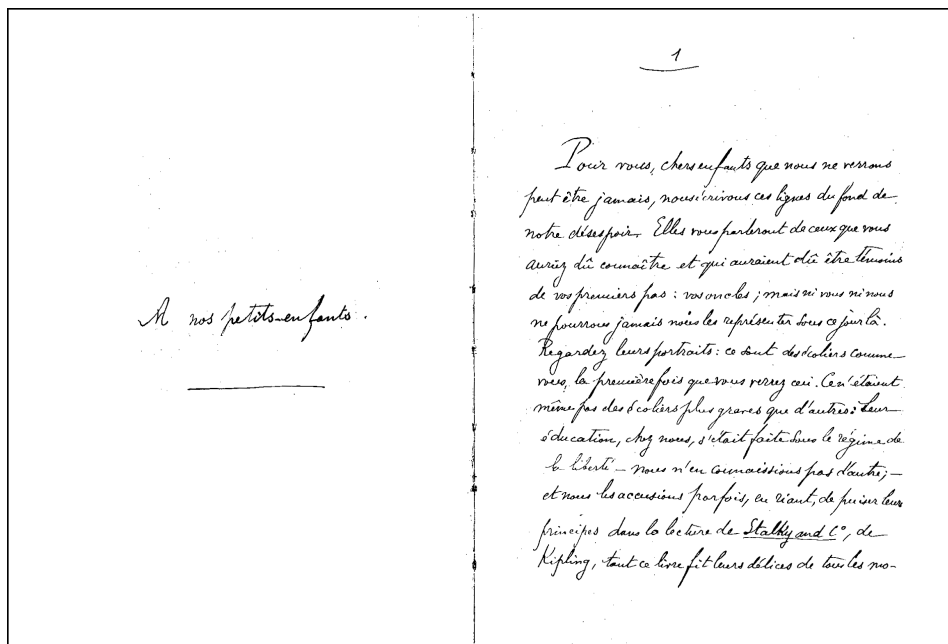 A nos petits-enfants.
1
Pour vous, chers enfants que nous ne verrons
peut être jamais, nous écrivons ces lignes du fond de
notre désespoir. Elles vous parleront de ceux que vous
auriez dû connaître et qui auraient dû être témoins
de vos premiers pas : vos oncles ; mais ni vous ni nous
ne pourrons jamais nous les représenter sous ce jour là.
Regardez leurs portraits : ce sont des écoliers comme
vous, la première fois que vous verrez ceci. Ce n'étaient
même pas des écoliers plus graves que d'autres : leur
éducation, chez nous, s'était faite sous le régime de
la liberté — nous n'en connaissions pas d'autre ; —
et nous les accusions parfois, en riant, de puiser leurs
principes dans la lecture de Stalky and C°, de
Kipling, tant ce livre fit leurs délices de tous les mo-